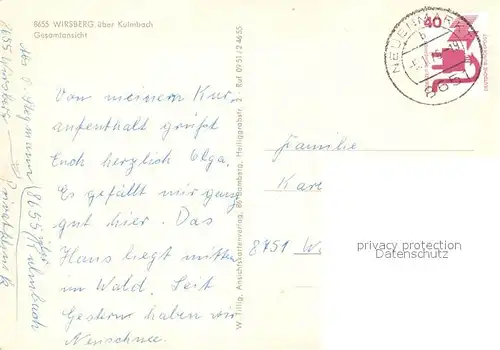 8655 WIRSBERG über Kulmbach
Gesamtansicht
Von meinem Kur-
aufenthalt grüßt
Euch herzlich Olga.
Es gefällt mir ganz
gut hier. Das
Haus liegt mitten
im Wald. Seit
Gestern haben wir
Neuschnee.
8655 Wirsberg
(8655) Kulmbach
W. Tillig, Ansichtskartenverlag, 86 Bamberg, Heiliggrabstr. 2 · Ruf 09 51 / 2 46 55
NEUENMARKT
b
865
40
DEUTSCHE BUNDESPOST
Familie
Karl
8751 W.
privacy protection
Datenschutz